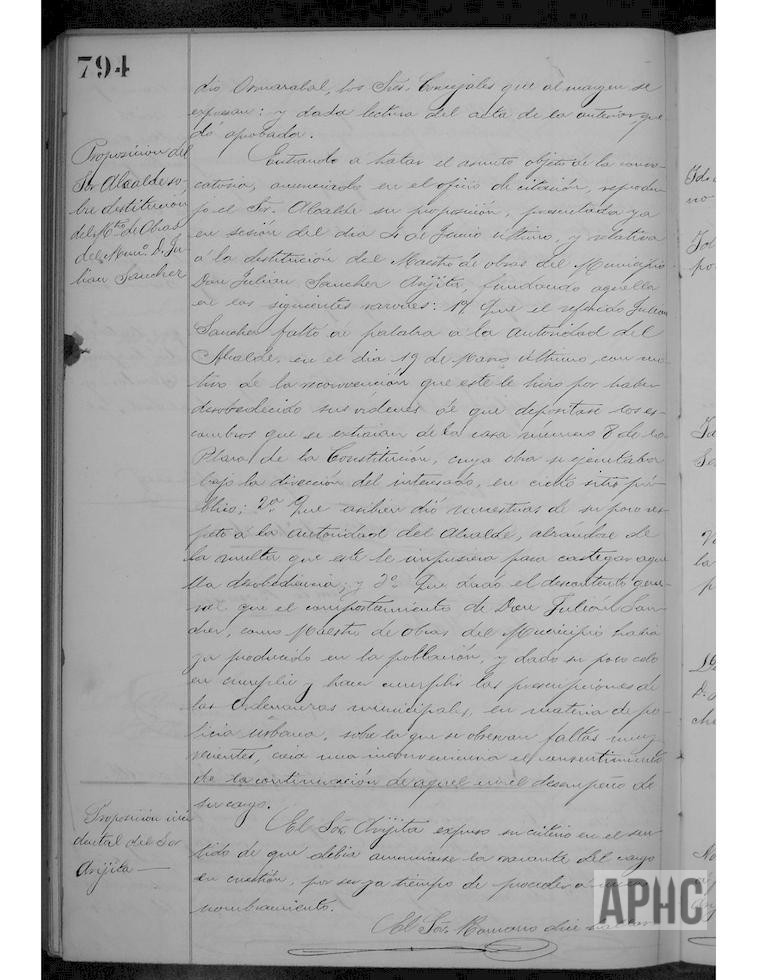 794
dio Osmarabal, los Sres. Concejales que al margen se
expresan: y dada lectura del acta de la anterior que
dó aprobada.
Proposicion del
Sor. Alcalde so-
bre destitucion
del Mtro. de Obras
del Muno. D. Ju
lian Sanchez
Entrando a tratar el asunto objeto de la convo-
catoria, anunciado en el oficio de citación, reprodu-
jo el Sr. Alcalde su proposición, presentada ya
en sesión del dia 4 de Junio ultimo, y relativa
á la destitución del Maestro de obras del Municipio
Don Julian Sanchez Arijita, fundando aquella
en las siguientes razones: 1ª Que el referido Julian
Sanchez faltó de palabra á la autoridad del
Alcalde, en el dia 19 de Marzo ultimo, con mo-
tivo de la reconvención que este le hizo por haber
desobedecido sus ordenes de que depositase los es-
combros que se extraian de la casa número 8 de la
Plaza de la Constitución, cuya obra se ejecutaba
bajo la dirección del interesado, en cierto sitio pú-
blico; 2ª Que tambien dió muestras de su poco res-
peto a la autoridad del Alcalde, alzándose de
la multa que este le impusiera para castigar aque-
lla desobediencia; y 3ª Que dado el descontento gene-
ral que el comportamiento de Don Julián San-
chez, como Maestro de obras del Municipio habia
ya producido en la población, y dado su poco celo
en cumplir y hacer cumplir las prescripciones de
las Ordenanzas municipales, en materia de po-
licia urbana, sobre la que se observan faltas muy
creia una inconveniencia el consentimiento
de la continuación de aquel en el desempeño de
su cargo.
Proposición inci
dental del Sor
Arijita
El Sor. Arijita expuso su criterio en el sen-
tido de que debia anunciarse la vacante del cargo
en cuestión, por ser ya tiempo de proceder a
nombramiento.
El Sor. Romano dice
APHC